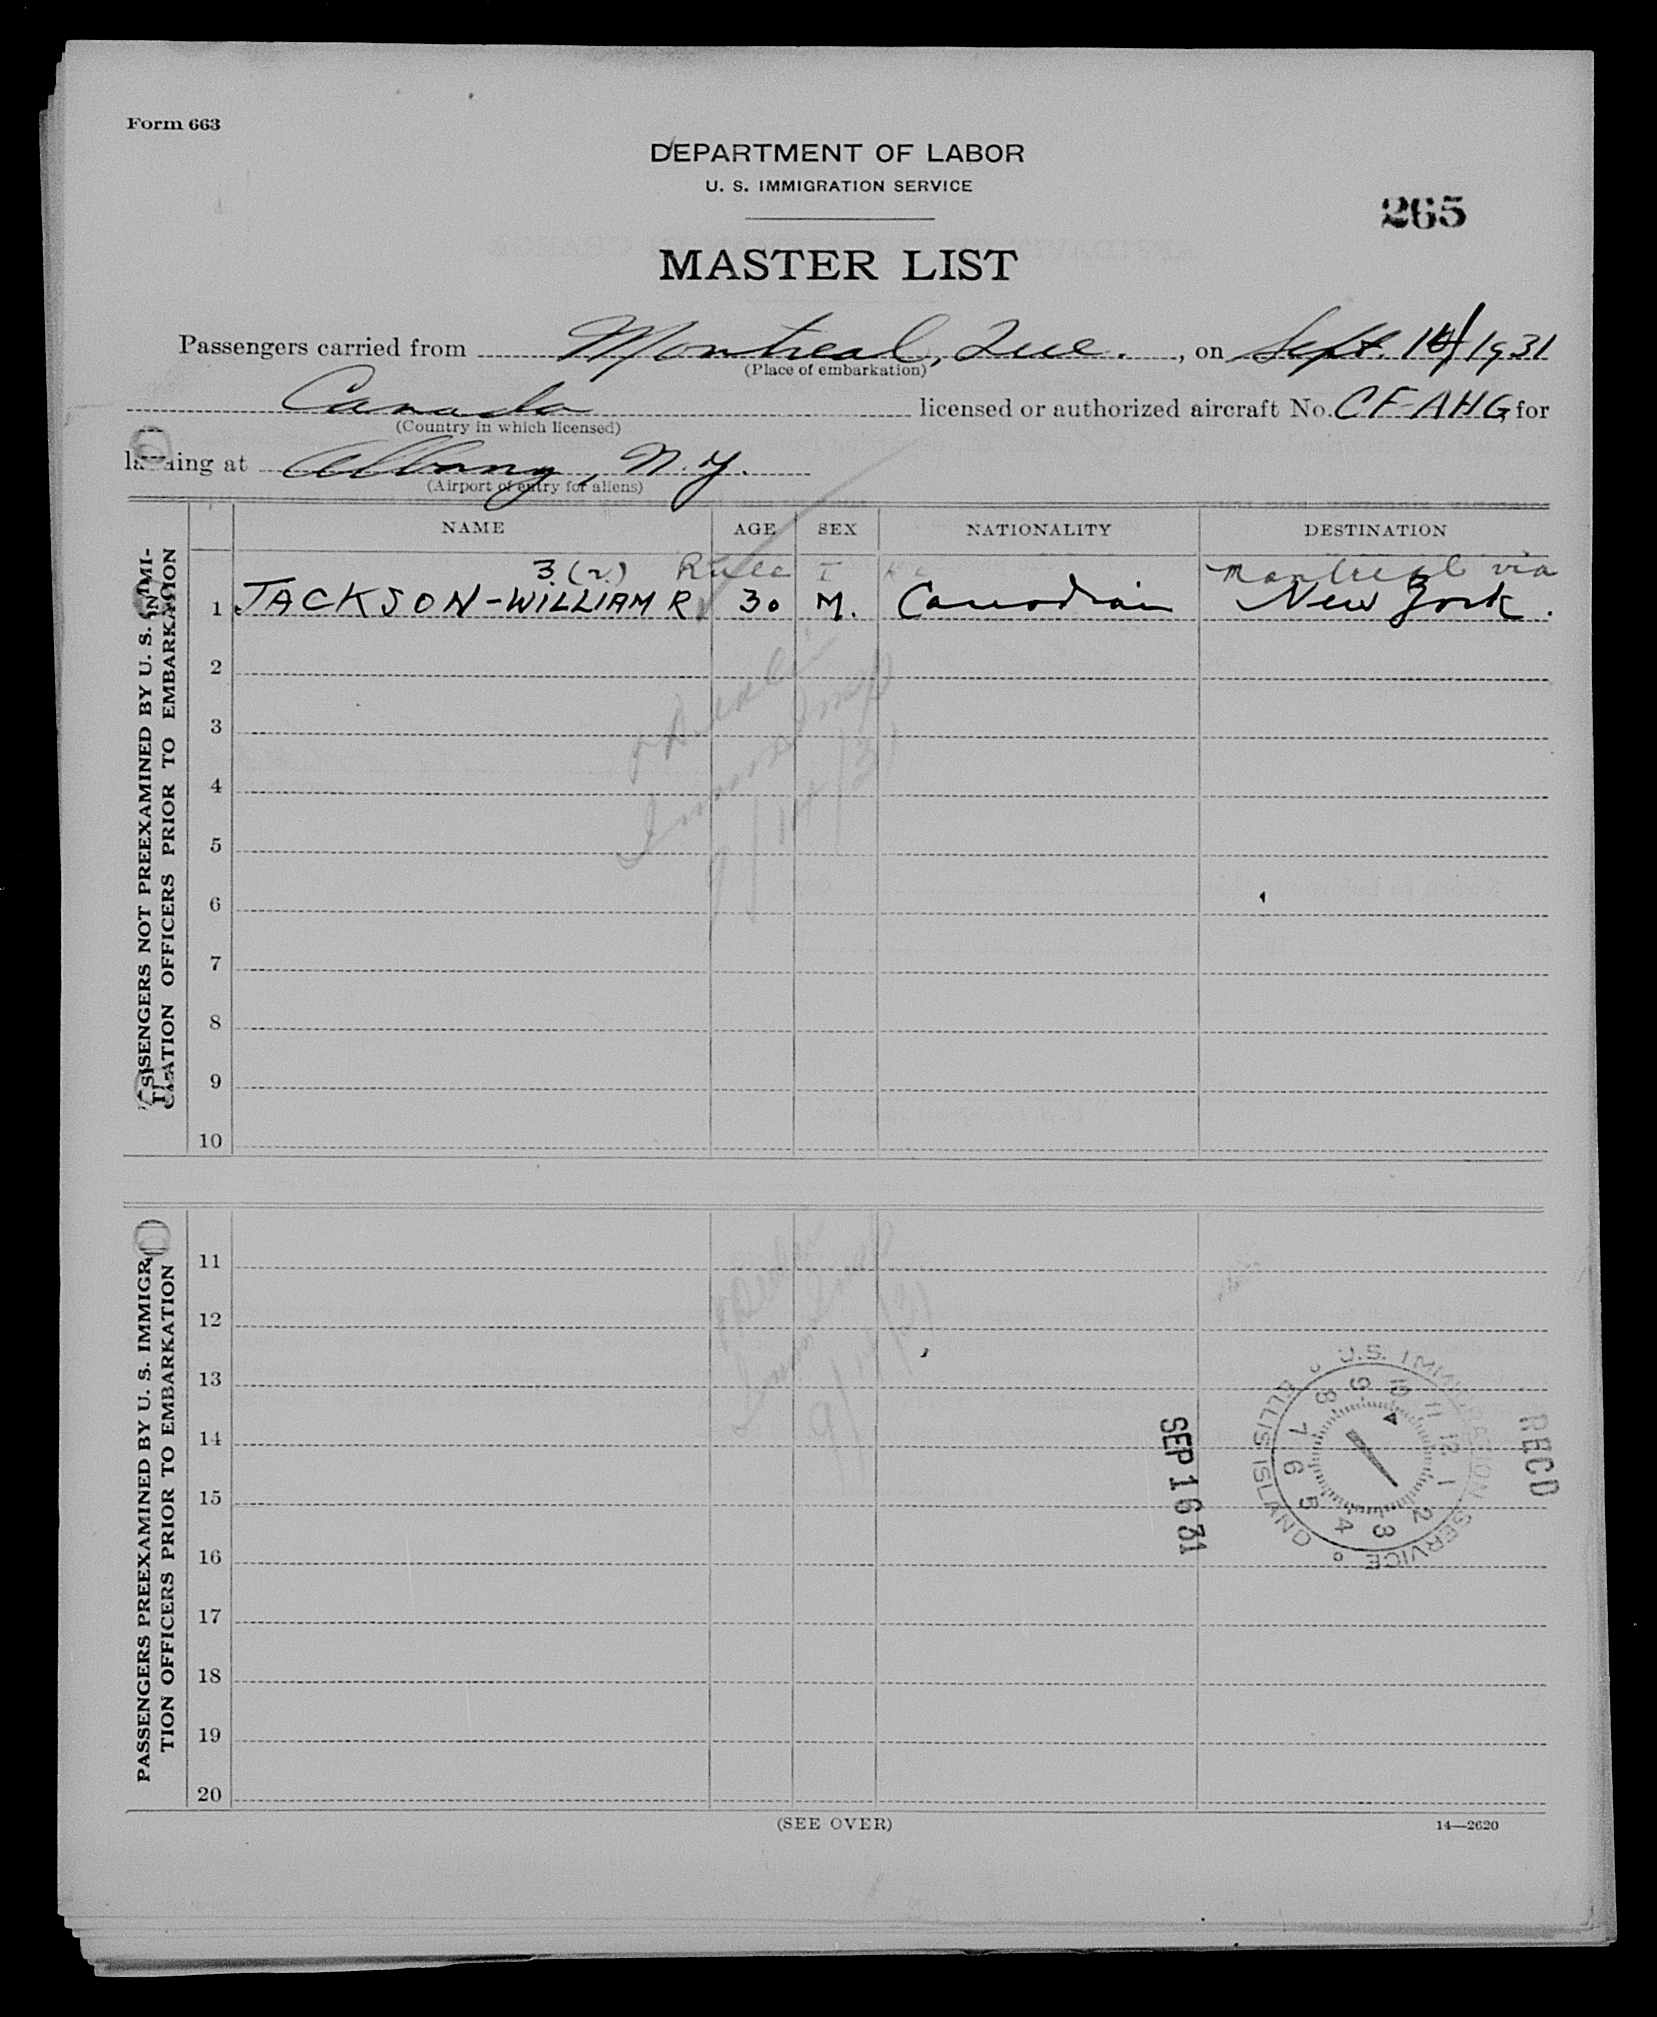 Form 663
DEPARTMENT OF LABOR
U. S. IMMIGRATION SERVICE
265
MASTER LIST
Passengers carried from Montreal, Que. , on Sept. 14/1931
(Place of embarkation)
Canada licensed or authorized aircraft No. CF-AHG, for
(Country in which licensed)
landing at Albany, N.Y.
(Airport of entry for aliens)
NAME AGE SEX NATIONALITY DESTINATION
3.(2) Rule I Montreal via
1 JACKSON-WILLIAM R. 30 M. Canadian New York.
2
3
4
5
6
7
8
9
10
PASSENGERS NOT PREEXAMINED BY U. S. IMMI-
GRATION OFFICERS PRIOR TO EMBARKATION
Immig Insp
9/14/31
11
12
13
14
15
16
17
18
19
20
PASSENGERS PREEXAMINED BY U. S. IMMIGRA-
TION OFFICERS PRIOR TO EMBARKATION
Immig Insp
9/14/31
SEP 16 31
U.S. IMMIGRATION SERVICE
ELLIS ISLAND
1 2 3 4 5 6 7 8 9 10 11 12
RECD
(SEE OVER)
14—2620